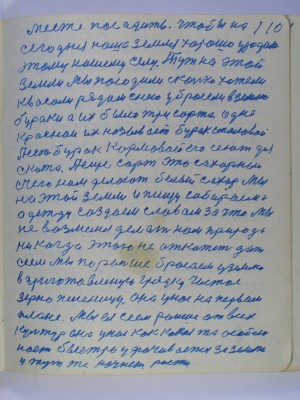 месте посадить. чтобы на 110
сегодня наша земля хорошо уродила
этому нашему селу. Тут на этой
земли мы посодили сколко хотели
квасоли рядом с нею убросаем в землю
бураки а их было три сорта одне
красноеи их называют бурак столовой
Лест бурак Кормавой его сеют для
скота. А еще сорт это сахарной
с чего нам делают белый сахар. Мы
на этой земли и пищу собираем и
одежду создаем словам за что мы
не возмемся делат нам природа
никогда этого не откажет дат
сем мы пораньше бросаем у землю
в приготовленую грядку чистое
зерно пшеницу. Она у нас на первом
плане. Мы ей сеем раньше от всех
култур она у нас как кова та особено
нает быстро у фочивается за землю
и тут же начнет рости